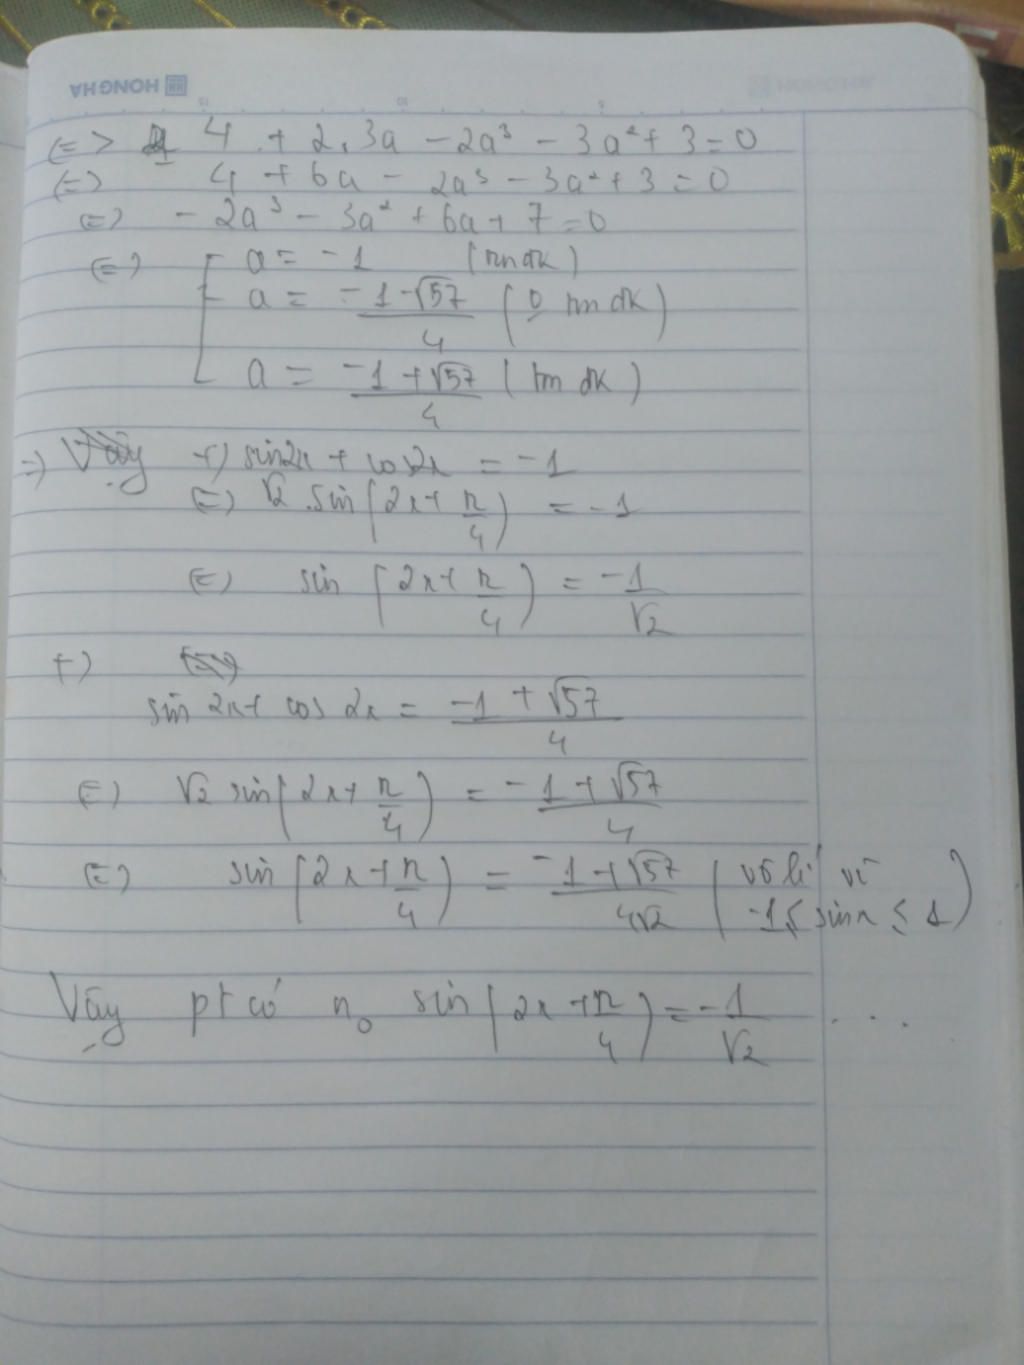 HONG HA
<=> 4 + 2.3a - 2a³ - 3a² + 3 = 0
(=) 4 + 6a - 2a³ - 3a² + 3 = 0
(=) - 2a³ - 3a² + 6a + 7 = 0
(=) [ a = -1 (tmđk)
a = (-1 - √57)/4 (o tm đk)
a = (-1 + √57)/4 (tm đk)
=) Vậy +) sin2x + cos2x = -1
(=) √2 . sin(2x + π/4) = -1
(=) sin(2x + π/4) = -1/√2
+) (=)
sin 2x + cos 2x = (-1 + √57)/4
(=) √2 sin(2x + π/4) = (-1 + √57)/4
(=) sin(2x + π/4) = (-1 + √57)/(4√2) (vô lí vì -1 ≤ sinx ≤ 1)
Vậy pt có n₀ sin(2x + π/4) = -1/√2 ...